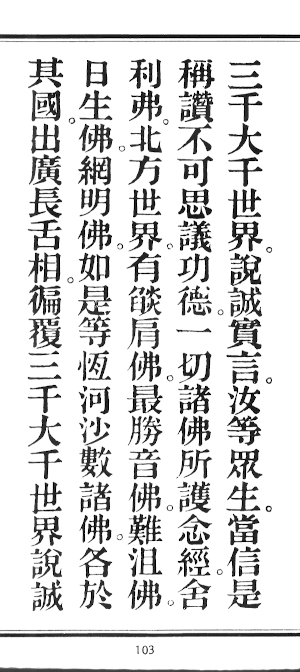 三千大千世界。說誠實言。汝等眾生。當信是
稱讚不可思議功德。一切諸佛所護念經。舍
利弗。北方世界。有燄肩佛。最勝音佛。難沮佛。
日生佛。網明佛。如是等恆河沙數諸佛。各於
其國。出廣長舌相。徧覆三千大千世界說誠
103